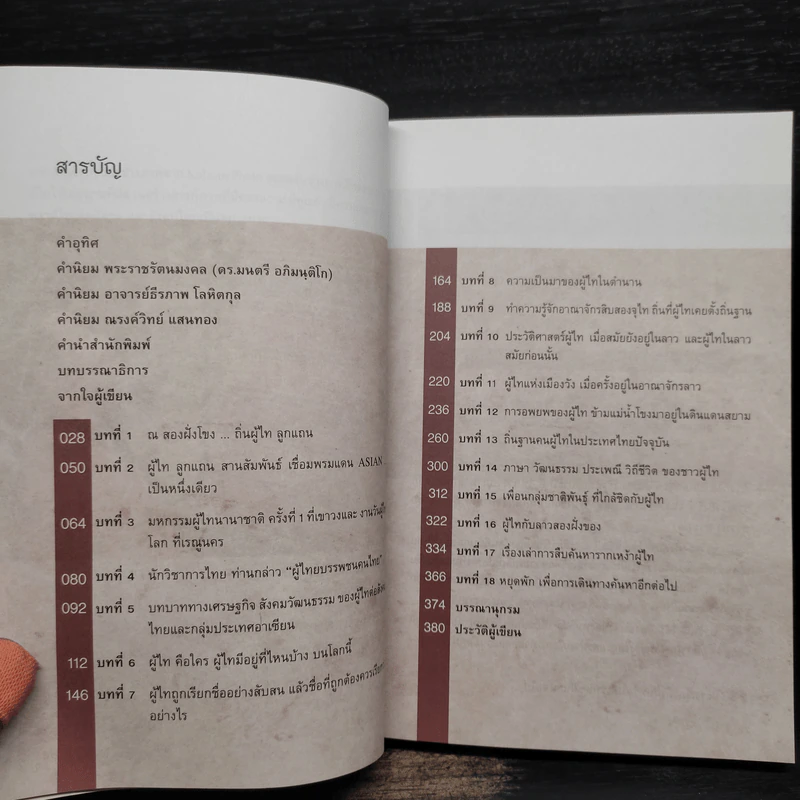 สารบัญ
คำอุทิศ
คำนิยม พระราชรัตนมงคล (ดร.มนตรี อภิมนฺติโก)
คำนิยม อาจารย์ธีรภาพ โลหิตกุล
คำนิยม ณรงค์วิทย์ แสนทอง
คำนำสำนักพิมพ์
บทบรรณาธิการ
จากใจผู้เขียน
028 บทที่ 1 ณ สองฝั่งโขง ... ถิ่นผู้ไท ลูกแถน
050 บทที่ 2 ผู้ไท ลูกแถน สานสัมพันธ์ เชื่อมพรมแดน ASIAN
เป็นหนึ่งเดียว
064 บทที่ 3 มหกรรมผู้ไทนานาชาติ ครั้งที่ 1 ที่เขาวงและ งานวันผู้ไท
โลก ที่เรณูนคร
080 บทที่ 4 นักวิชาการไทย ท่านกล่าว “ผู้ไทยบรรพชนคนไทย”
092 บทที่ 5 บทบาททางเศรษฐกิจ สังคมวัฒนธรรม ของผู้ไทต่อสังคม
ไทยและกลุ่มประเทศอาเซียน
112 บทที่ 6 ผู้ไท คือใคร ผู้ไทมีอยู่ที่ไหนบ้าง บนโลกนี้
146 บทที่ 7 ผู้ไทถูกเรียกชื่ออย่างสับสน แล้วชื่อที่ถูกต้องควรเรียก
อย่างไร
164 บทที่ 8 ความเป็นมาของผู้ไทในตำนาน
188 บทที่ 9 ทำความรู้จักอาณาจักรสิบสองจุไท ถิ่นที่ผู้ไทเคยตั้งถิ่นฐาน
204 บทที่ 10 ประวัติศาสตร์ผู้ไท เมื่อสมัยยังอยู่ในลาว และผู้ไทในลาว
สมัยก่อนนั้น
220 บทที่ 11 ผู้ไทแห่งเมืองวัง เมื่อครั้งอยู่ในอาณาจักรลาว
236 บทที่ 12 การอพยพของผู้ไท ข้ามแม่น้ำโขงมาอยู่ในดินแดนสยาม
260 บทที่ 13 ถิ่นฐานคนผู้ไทในประเทศไทยปัจจุบัน
300 บทที่ 14 ภาษา วัฒนธรรม ประเพณี วิถีชีวิต ของชาวผู้ไท
312 บทที่ 15 เพื่อนกลุ่มชาติพันธุ์ ที่ใกล้ชิดกับผู้ไท
322 บทที่ 16 ผู้ไทกับลาวสองฝั่งของ
334 บทที่ 17 เรื่องเล่าการสืบค้นหารากเหง้าผู้ไท
366 บทที่ 18 หยุดพัก เพื่อการเดินทางค้นหาอีกต่อไป
374 บรรณานุกรม
380 ประวัติผู้เขียน